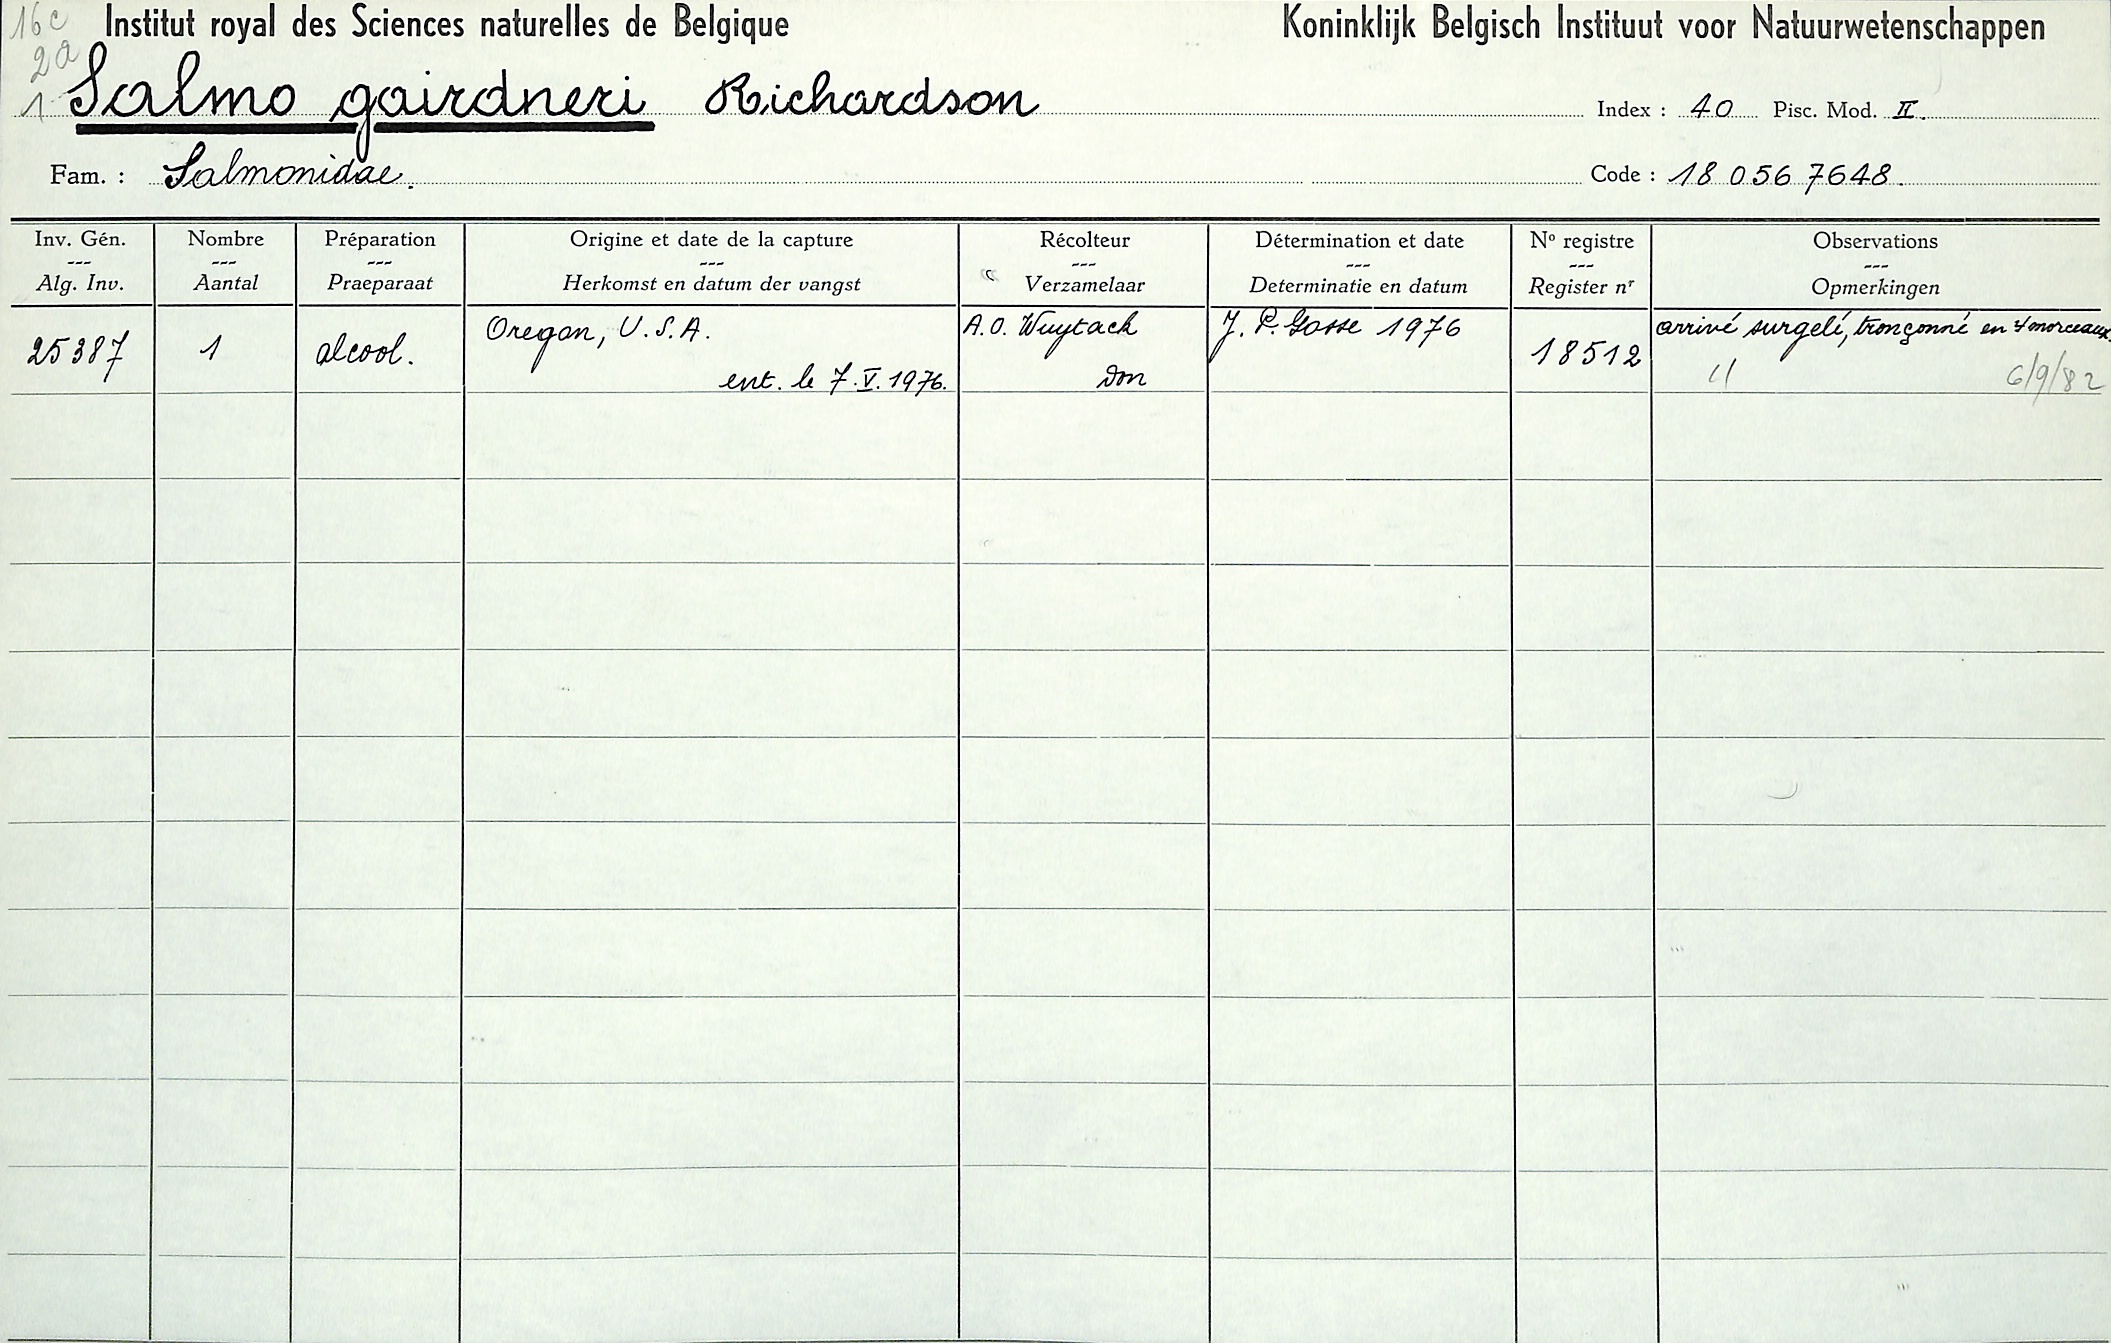 16c Institut royal des Sciences naturelles de Belgique Koninklijk Belgisch Instituut voor Natuurwetenschappen
2a
1 Salmo gairdneri Richardson Index : 40 Pisc. Mod. II.
Fam. : Salmonidae. Code : 18 056 7648.
Inv. Gén. Nombre Préparation Origine et date de la capture Récolteur Détermination et date Nº registre Observations
--- --- --- --- --- --- --- ---
Alg. Inv. Aantal Praeparaat Herkomst en datum der vangst Verzamelaar Determinatie en datum Register nr Opmerkingen
25387 1 alcool. Oregon, U.S.A. A.O. Wuytack J. P. Gosse 1976 18512 arrivé surgelé, tronçonné en 4 morceaux.
ent. le 7.V.1976. don 6/9/82